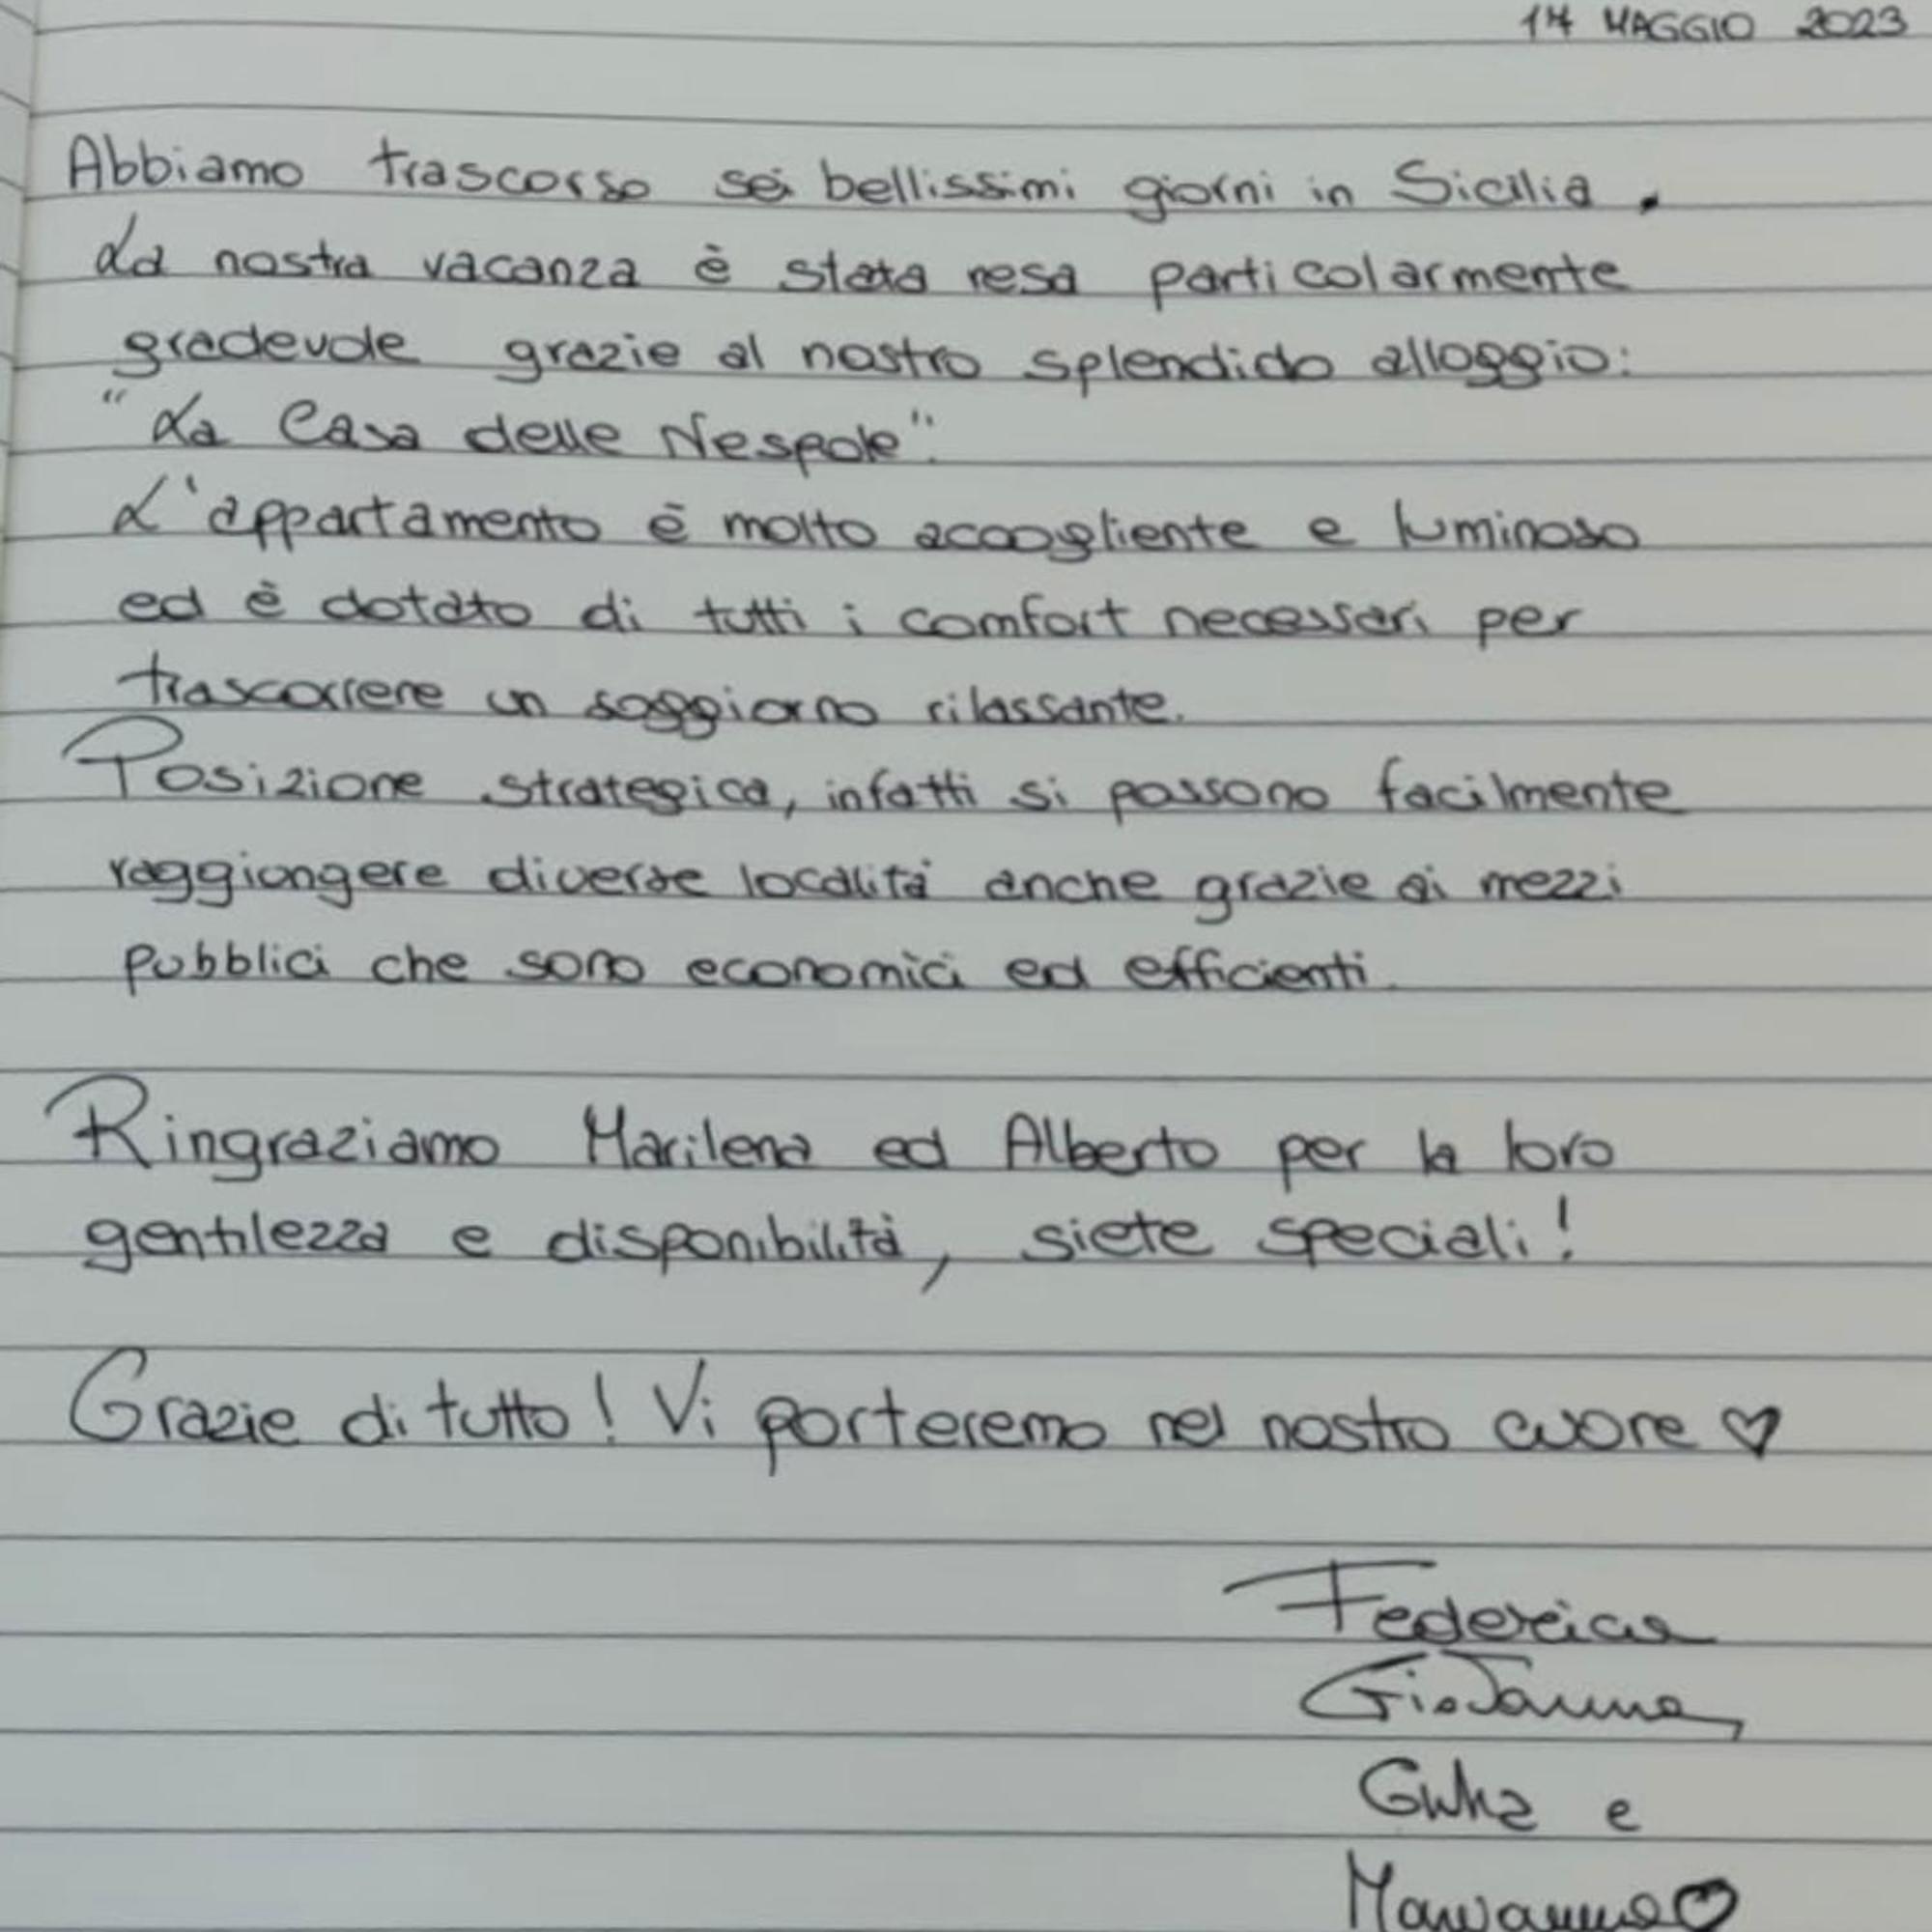 14 MAGGIO 2023
Abbiamo trascorso sei bellissimi giorni in Sicilia.
La nostra vacanza è stata resa particolarmente
gradevole grazie al nostro splendido alloggio:
"La Casa delle Nespole".
L'appartamento è molto accogliente e luminoso
ed è dotato di tutti i comfort necessari per
trascorrere un soggiorno rilassante.
Posizione strategica, infatti si possono facilmente
raggiungere diverse località anche grazie ai mezzi
pubblici che sono economici ed efficienti.
Ringraziamo Marilena ed Alberto per la loro
gentilezza e disponibilità, siete speciali!
Grazie di tutto! Vi porteremo nel nostro cuore ♡
Federica
Giovanna,
Giulia e
Marianna♡